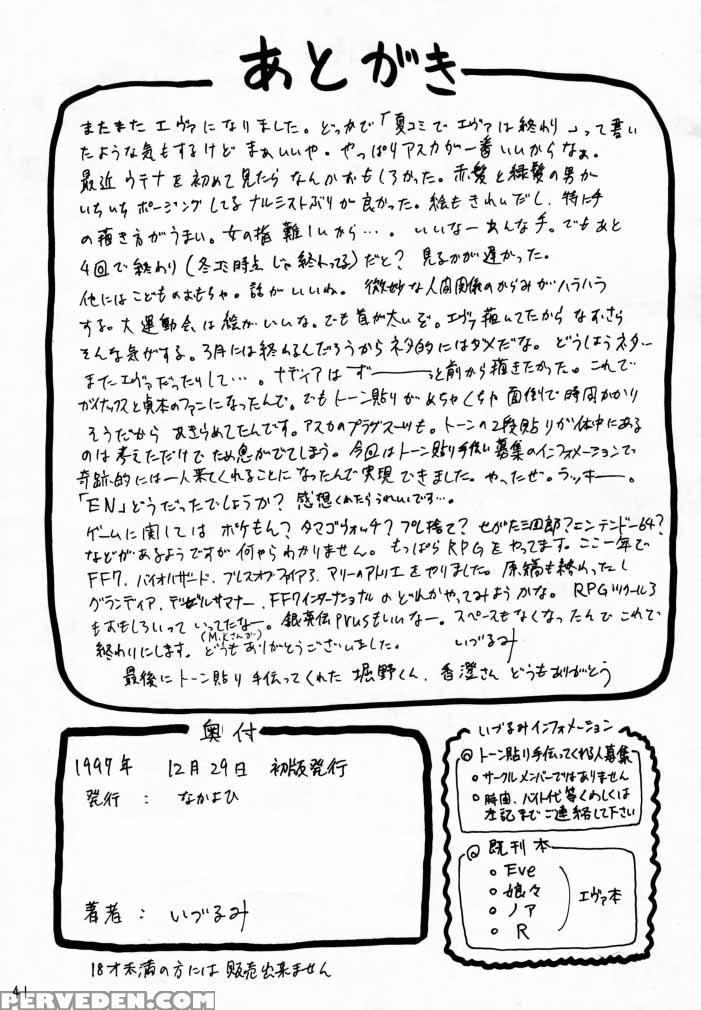 あとがき
またまたエヴァになりました。どっかで「夏コミでエヴァは終わり」って書い
たような気もするけどまぁいいや。やっぱりアスカが一番いいからなぁ。
最近ウテナを初めて見たらなんかおもしろかった。赤髪と緑髪の男が
いちいちポージングしてるナルシストぶりが良かった。絵もきれいだし、特に手
の描き方がうまい。女の指難しいから…。いいなーあんな手。でもあと
4回で終わり(冬コミ時点じゃ終わってる)だと? 見るのが遅かった。
他にはこどものおもちゃ。話がいいね。微妙な人間関係のからみがハラハラ
する。大運動会は絵がいいな。でも首が太いぞ。エヴァ描いてたからなおさら
そんな気がする。3月には終わるんだろうからネタ的にはダメだな。どうしようネター
またエヴァだったりして…。ナディアはずーーーっと前から描きたかった。これで
ガイナックスと貞本のファンになったんで。でもトーン貼りがめちゃくちゃ面倒で時間かかり
そうだからあきらめてたんです。アスカのプラグスーツも。トーンの2段貼りが体中にある
のは考えただけでため息がでてしまう。今回はトーン貼り手伝い募集のインフォメーションで
奇跡的には一人来てくれることになったんで実現できました。やったぜ。ラッキー。
「EN」どうだったでしょうか? 感想くれたらうれしいです…。
ゲームに関してはポケもん? タマゴウォッチ? プレ捨て? せがた三四郎? ニンテンドー64?
などがあるようですが何やらわかりません。もっぱらRPGをやってます。ここ一年で
FF7、バイオハザード、ブレスオブファイア3、マリーのアトリエをやりました。原稿も終わったし
グランディア、デビルサマナー、FF7インターナショナルのどれかやってみようかな。RPGツクール3
もおもしろいって(M.Kさんが)いってたなー。銀英伝prusもいいなー。スペースもなくなったんでこれで
終わりにします。どうもありがとうございました。 いづるみ
最後にトーン貼り手伝ってくれた堀野くん、香澄さんどうもありがとう
奥付
1997年 12月29日 初版発行
発行 : なかよひ
著者 : いづるみ
いづるみインフォメーション
◎トーン貼り手伝ってくれる人募集
○サークルメンバーではありません
○時間、バイト代等くわしくは
左記までご連絡して下さい
◎既刊本
○Eve
○娘々
○ノア
○R
エヴァ本
18才未満の方には販売出来ません
41
PERVEDEN.COM